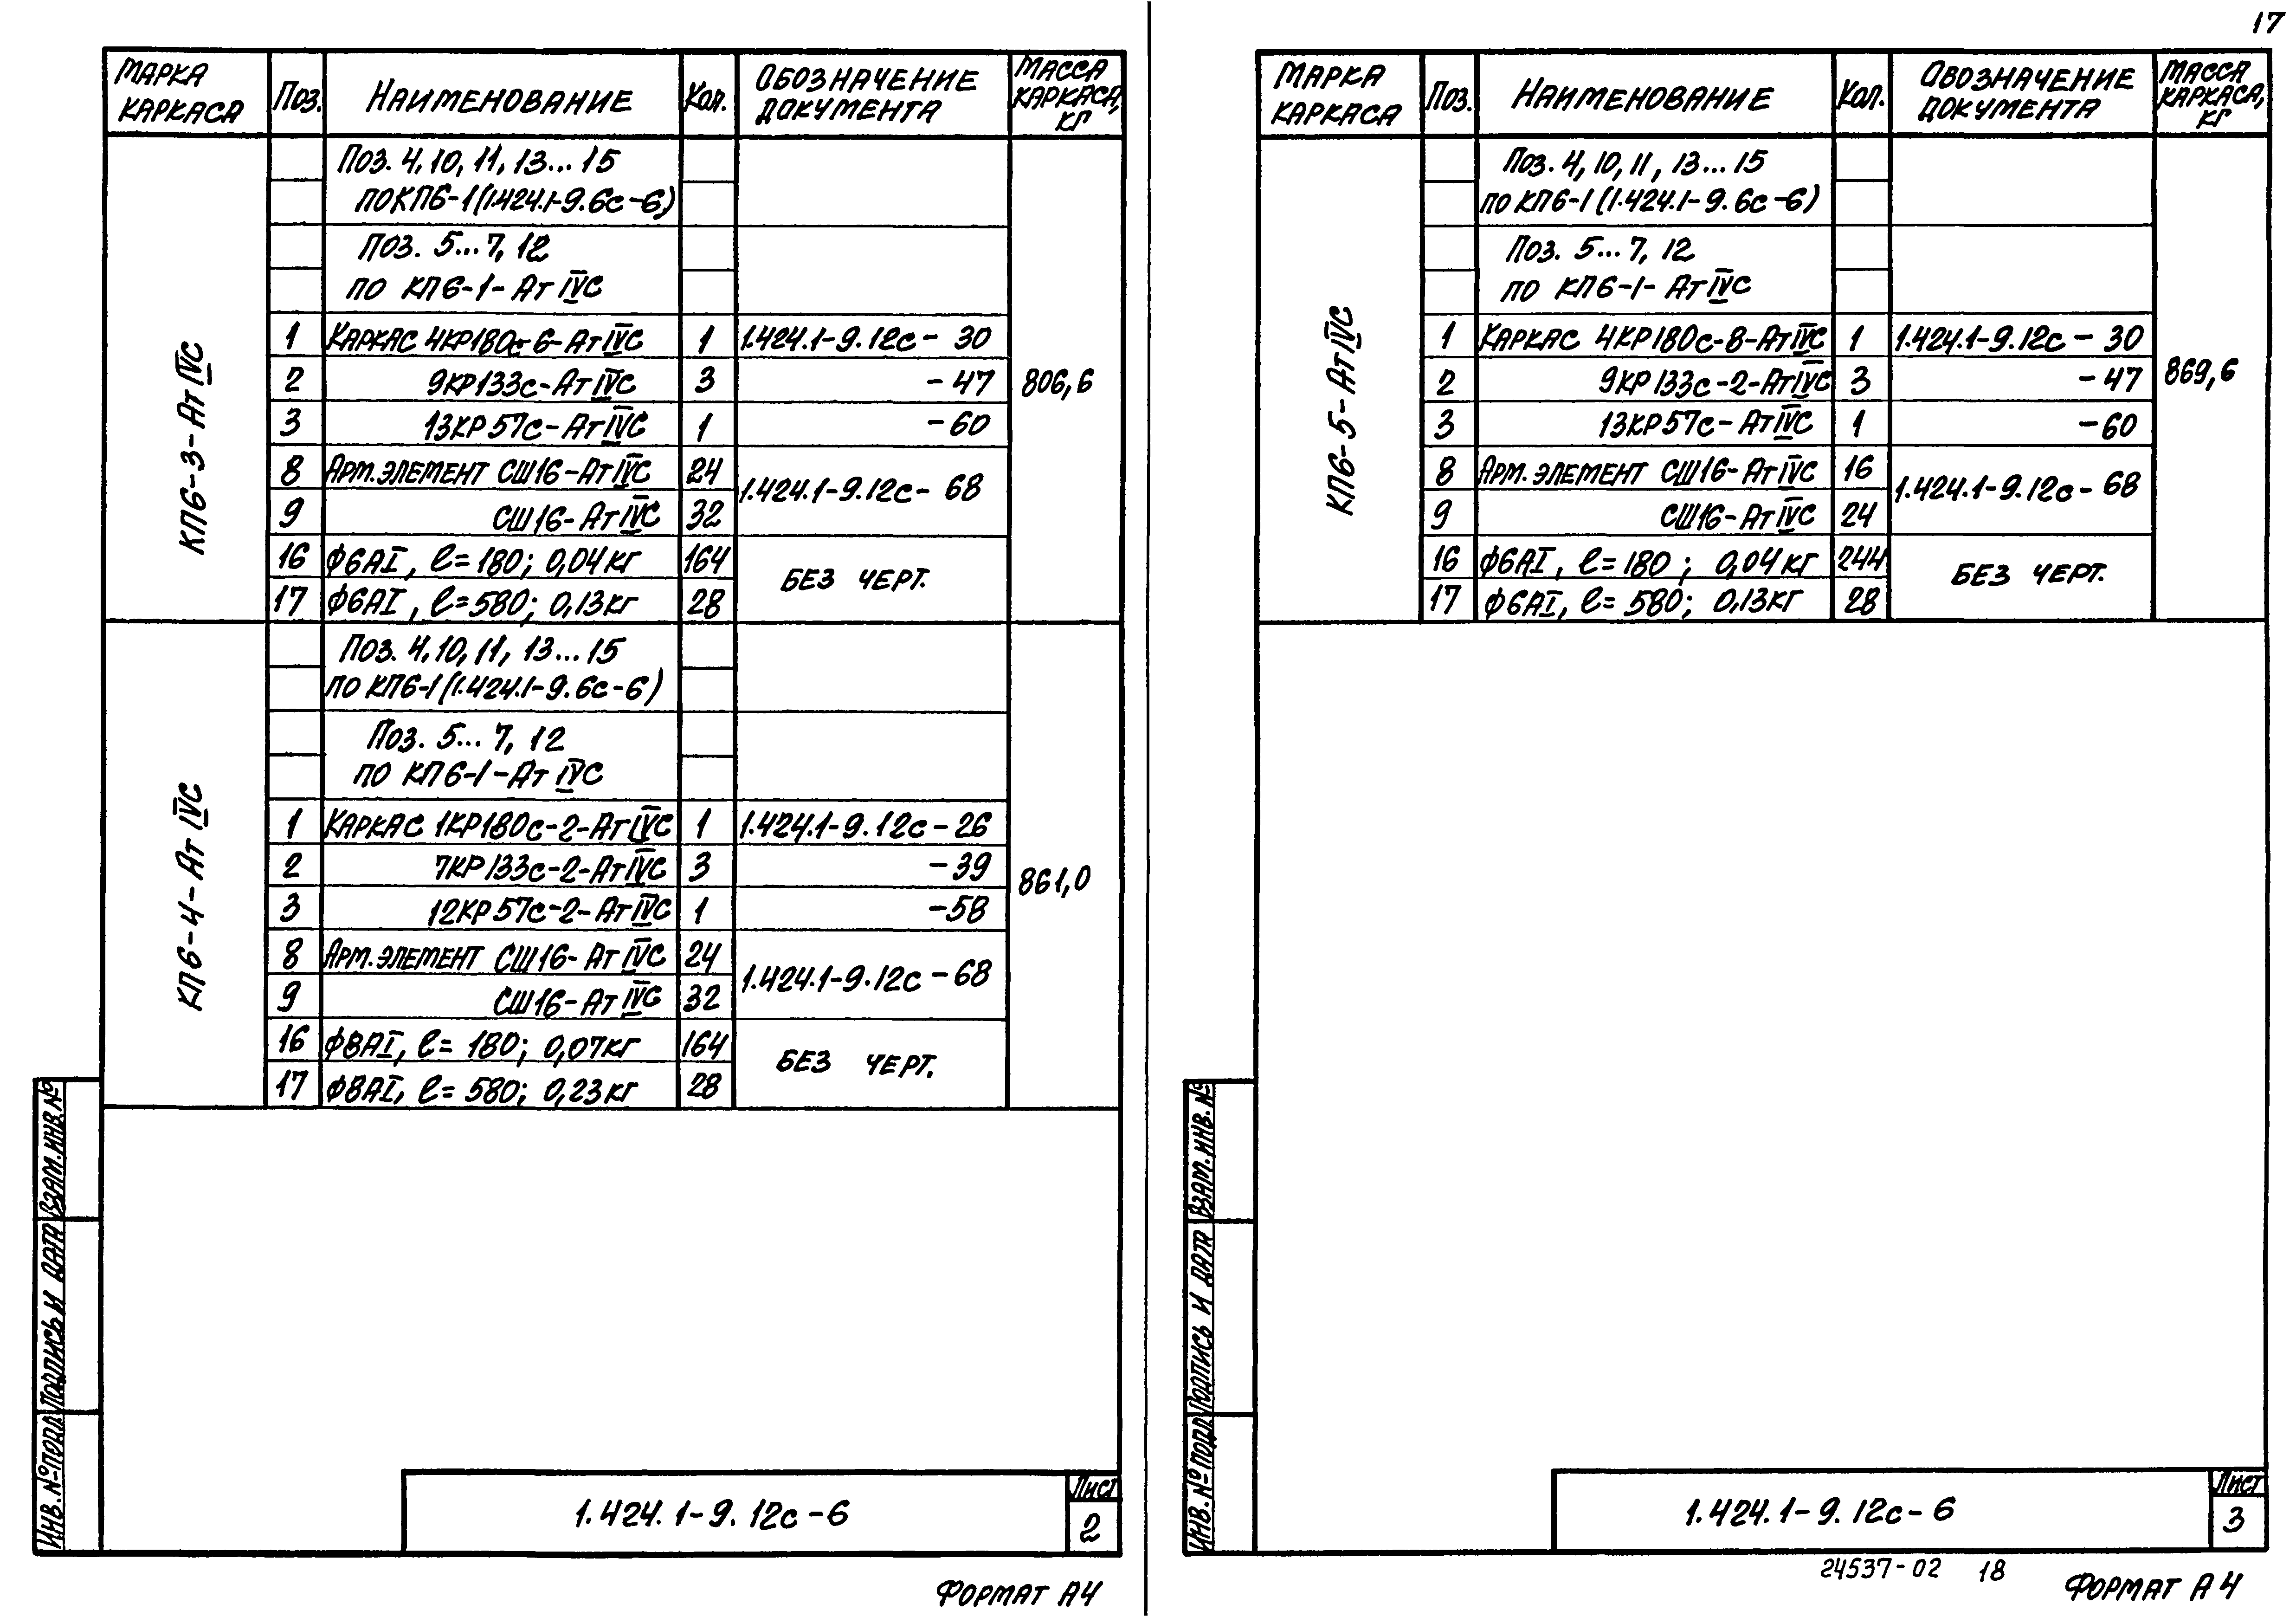 17
МАРКА КАРКАСА | ПОЗ. | НАИМЕНОВАНИЕ | КОЛ. | ОБОЗНАЧЕНИЕ ДОКУМЕНТА | МАССА КАРКАСА, КГ
КП6-3-АтIVС
ПОЗ. 4, 10, 11, 13...15
ПО КП6-1 (1.424.1-9.6с-6)
ПОЗ. 5...7, 12
ПО КП6-1-АтIVС
1 | КАРКАС 4КР180с-6-АтIVС | 1 | 1.424.1-9.12с-30
2 | 9КР133с-АтIVС | 3 | -47 | 806,6
3 | 13КР57с-АтIVС | 1 | -60
8 | АРМ. ЭЛЕМЕНТ СШ16-АтIVС | 24 | 1.424.1-9.12с-68
9 | СШ16-АтIVС | 32
16 | ф6АI, ℓ=180; 0,04кг | 164 | БЕЗ ЧЕРТ.
17 | ф6АI, ℓ=580; 0,13кг | 28
КП6-4-АтIVС
ПОЗ. 4, 10, 11, 13...15
ПО КП6-1 (1.424.1-9.6с-6)
ПОЗ. 5...7, 12
ПО КП6-1-АтIVС
1 | КАРКАС 1КР180с-2-АтIVС | 1 | 1.424.1-9.12с-26
2 | 7КР133с-2-АтIVС | 3 | -39 | 861,0
3 | 12КР57с-2-АтIVС | 1 | -58
8 | АРМ. ЭЛЕМЕНТ СШ16-АтIVС | 24 | 1.424.1-9.12с-68
9 | СШ16-АтIVС | 32
16 | ф8АI, ℓ=180; 0,07кг | 164 | БЕЗ ЧЕРТ.
17 | ф8АI, ℓ=580; 0,23кг | 28
ИНВ. № ПОДЛ. | ПОДПИСЬ И ДАТА | ВЗАМ. ИНВ. №
1.424.1-9.12с-6 | ЛИСТ 2
ФОРМАТ А4
МАРКА КАРКАСА | ПОЗ. | НАИМЕНОВАНИЕ | КОЛ. | ОБОЗНАЧЕНИЕ ДОКУМЕНТА | МАССА КАРКАСА, КГ
КП6-5-АтIVС
ПОЗ. 4, 10, 11, 13...15
ПО КП6-1 (1.424.1-9.6с-6)
ПОЗ. 5...7, 12
ПО КП6-1-АтIVС
1 | КАРКАС 4КР180с-8-АтIVС | 1 | 1.424.1-9.12с-30
2 | 9КР133с-2-АтIVС | 3 | -47 | 869,6
3 | 13КР57с-АтIVС | 1 | -60
8 | АРМ. ЭЛЕМЕНТ СШ16-АтIVС | 16 | 1.424.1-9.12с-68
9 | СШ16-АтIVС | 24
16 | ф6АI, ℓ=180; 0,04кг | 244 | БЕЗ ЧЕРТ.
17 | ф6АI, ℓ=580; 0,13кг | 28
ИНВ. № ПОДЛ. | ПОДПИСЬ И ДАТА | ВЗАМ. ИНВ. №
1.424.1-9.12с-6 | ЛИСТ 3
24537-02 18
ФОРМАТ А4